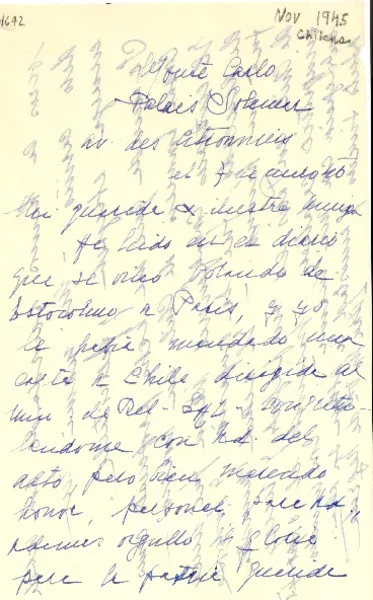 1642
Nov 1945
Chilena
Monte Carlo
Palais
av. des Citronniers
el 7 de
Mi querida & ilustre amiga
He leido en el diario
que se vino volando de
Estocolmo a Paris, y yo
le habia mandado una
carta a Chile dirigida al
min. de Rel. congratu-
landome con Ud. del
alto, pero bien merecido
honor, personal para Ud.,
orgullo & gloria
para la patria querida